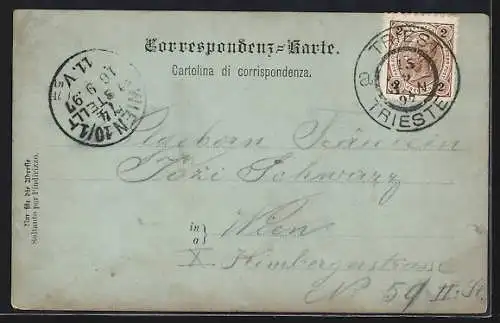 Correspondenz-Karte.
Cartolina di corrispondenza.
TRIEST
TRIESTE
2 2
2 2
WIEN 10/1
BESTELLT
16 9 97
11. V
Nur für die Adresse
Soltanto per l'indirizzo.
Fräulein
Schwarz
in
a
Wien
X Himbergerstrasse
No 59 II. St.